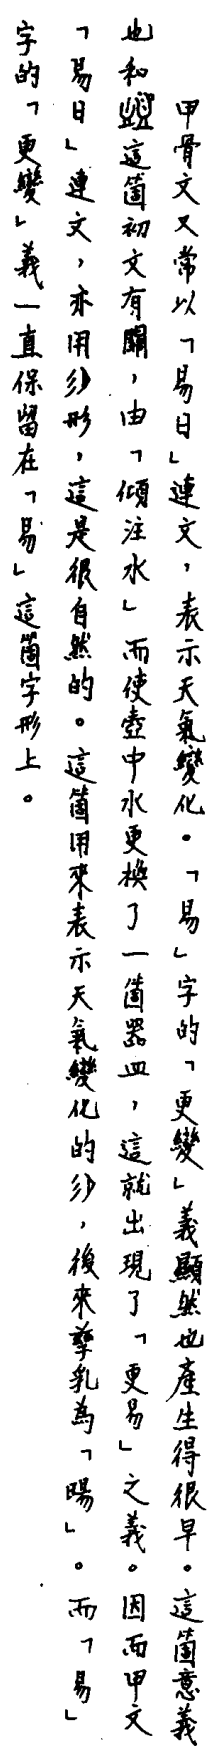 甲骨文又常以「易日」連文，表示天氣變化。「易」字的「更變」義顯然也產生得很早。這箇意義
也和這箇初文有關，由「傾注水」而使壺中水更換了一箇器皿，這就出現了「更易」之義。因而甲文
「易日」連文，亦用形，這是很自然的。這箇用來表示天氣變化的，後來孳乳為「暘」。而「易」
字的「更變」義一直保留在「易」這箇字形上。